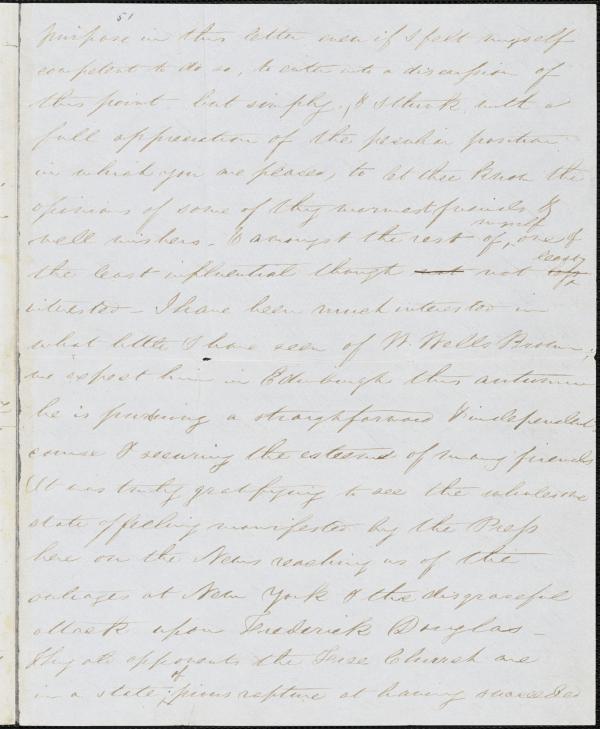 51
purpose in this letter even if I felt myself
competent to do so, to enter into a discussion of
this point - but simply, & I think with a
full appreciation of the peculiar position
in which you are placed, to let thee know the
opinions of some of thy warmest friends &
well wishers - & amongst the rest of myself, one of
the least influential though not least
interested - I have been much interested in
what little I have seen of W. Wells Brown;
we expect him in Edinburgh this autumn
he is pursuing a straightforward & independent
course & securing the esteem of many friends
It was truly gratifying to see the wholesome
state of feeling manifested by the Press
here on the News reaching us of the
outrages at New York & the disgraceful
attack upon Frederick Douglas -
Thy old opponents the Free Church are
in a state of pious rapture at having succeeded